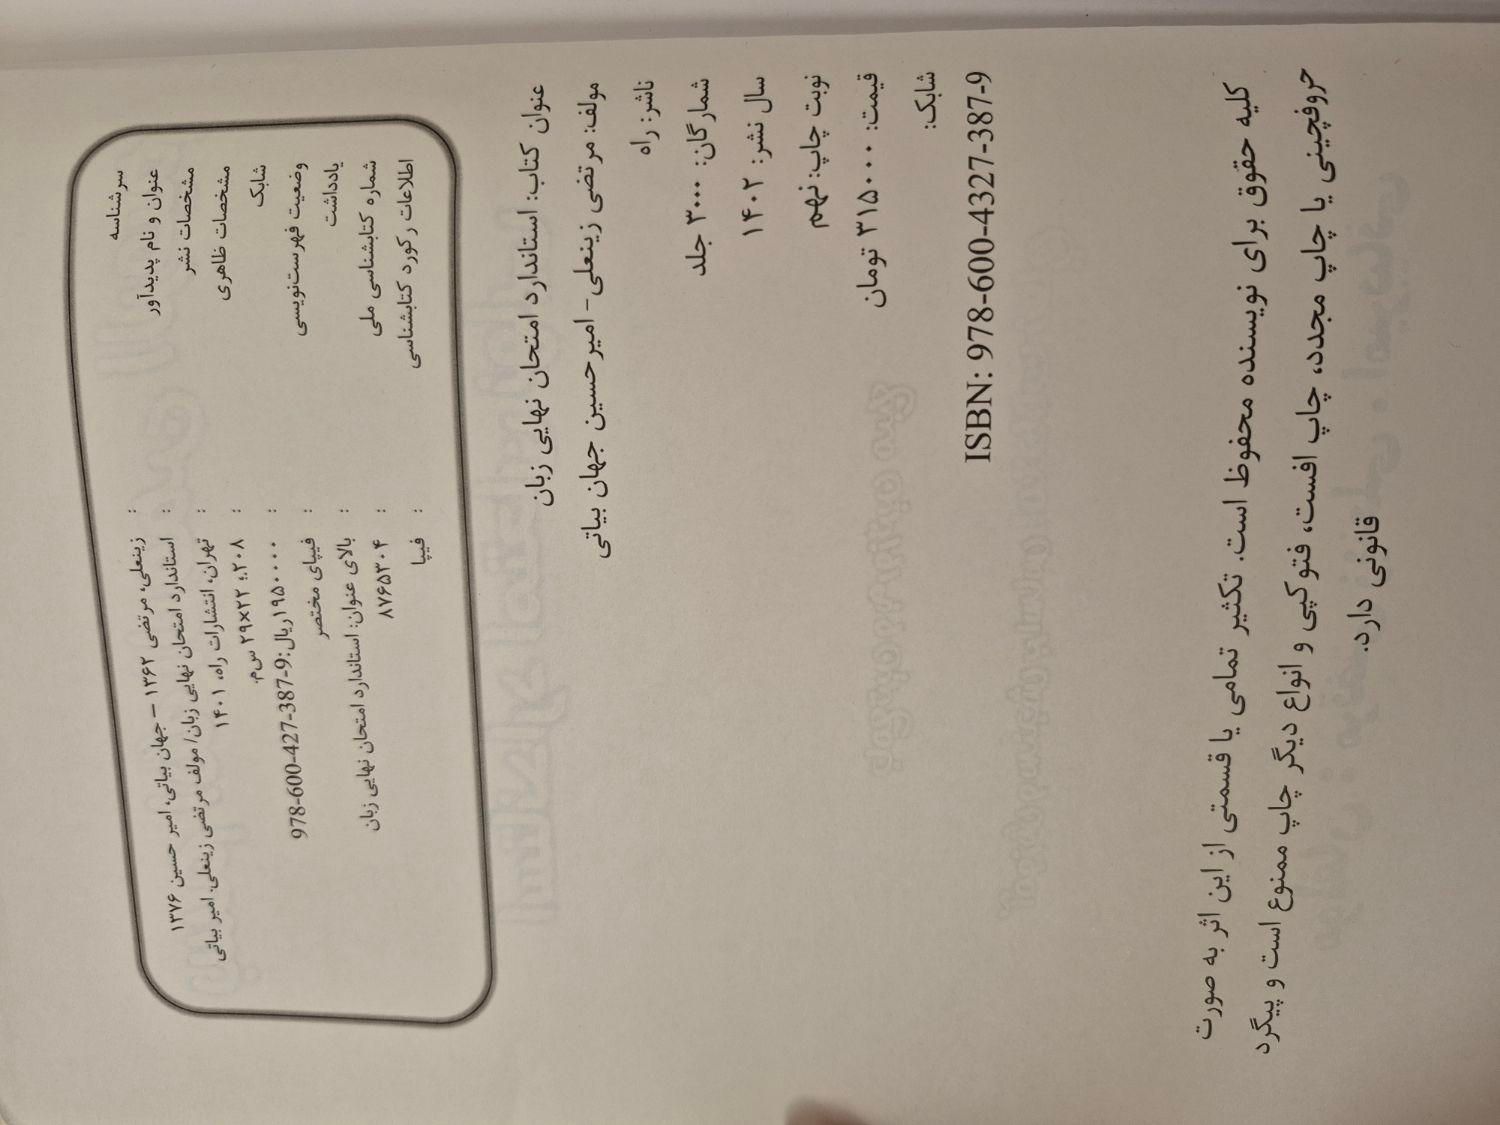 سرشناسه : زینعلی، مرتضی ۱۳۶۲ – جهان بیاتی، امیر حسین ۱۳۷۶
عنوان و نام پدیدآور : استاندارد امتحان نهایی زبان/ مولف مرتضی زینعلی. امیر بیاتی
مشخصات نشر : تهران، انتشارات راه، ۱۴۰۱
مشخصات ظاهری : ۲۰۸ص؛ ۲۲×۲۹ س‌م.
شابک : ۱۹۵۰۰۰۰ریال:978-600-427-387-9
وضعیت فهرست‌نویسی : فیپای مختصر
یادداشت : بالای عنوان: استاندارد امتحان نهایی زبان
شماره کتابشناسی ملی : ۸۷۶۵۳۰۴
اطلاعات رکورد کتابشناسی : فیپا
عنوان کتاب: استاندارد امتحان نهایی زبان
مولف: مرتضی زینعلی- امیرحسین جهان بیاتی
ناشر: راه
شمارگان: ۳۰۰۰ جلد
سال نشر: ۱۴۰۲
نوبت چاپ: نهم
قیمت: ۳۱۵۰۰۰ تومان
شابک:
ISBN: 978-600-4327-387-9
کلیه حقوق برای نویسنده محفوظ است. تکثیر تمامی یا قسمتی از این اثر به صورت
حروفچینی یا چاپ مجدد، چاپ افست، فتوکپی و انواع دیگر چاپ ممنوع است و پیگرد
قانونی دارد.